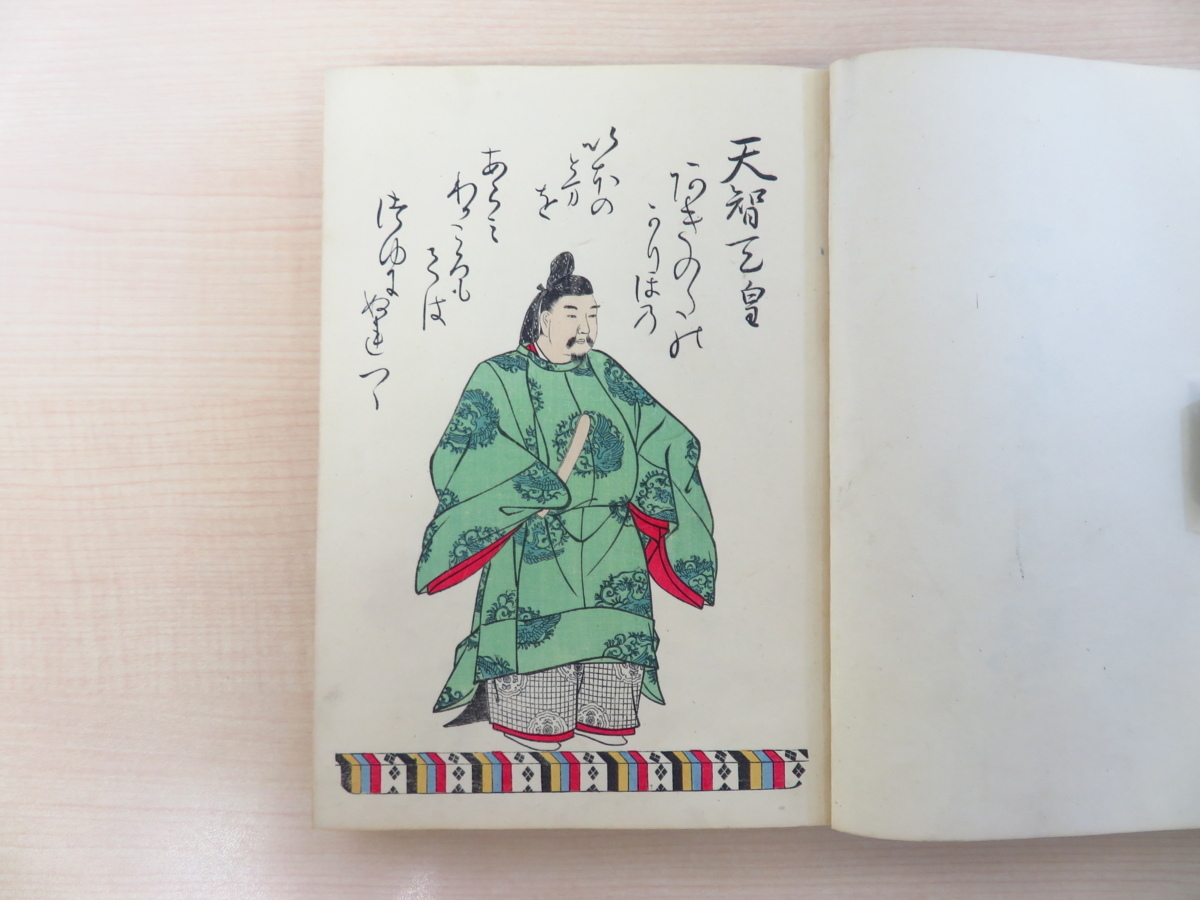 天智天皇
あきのたの
かりほの
いほの
とま
を
あらみ
わかころも
ては
つゆに
ぬれつゝ